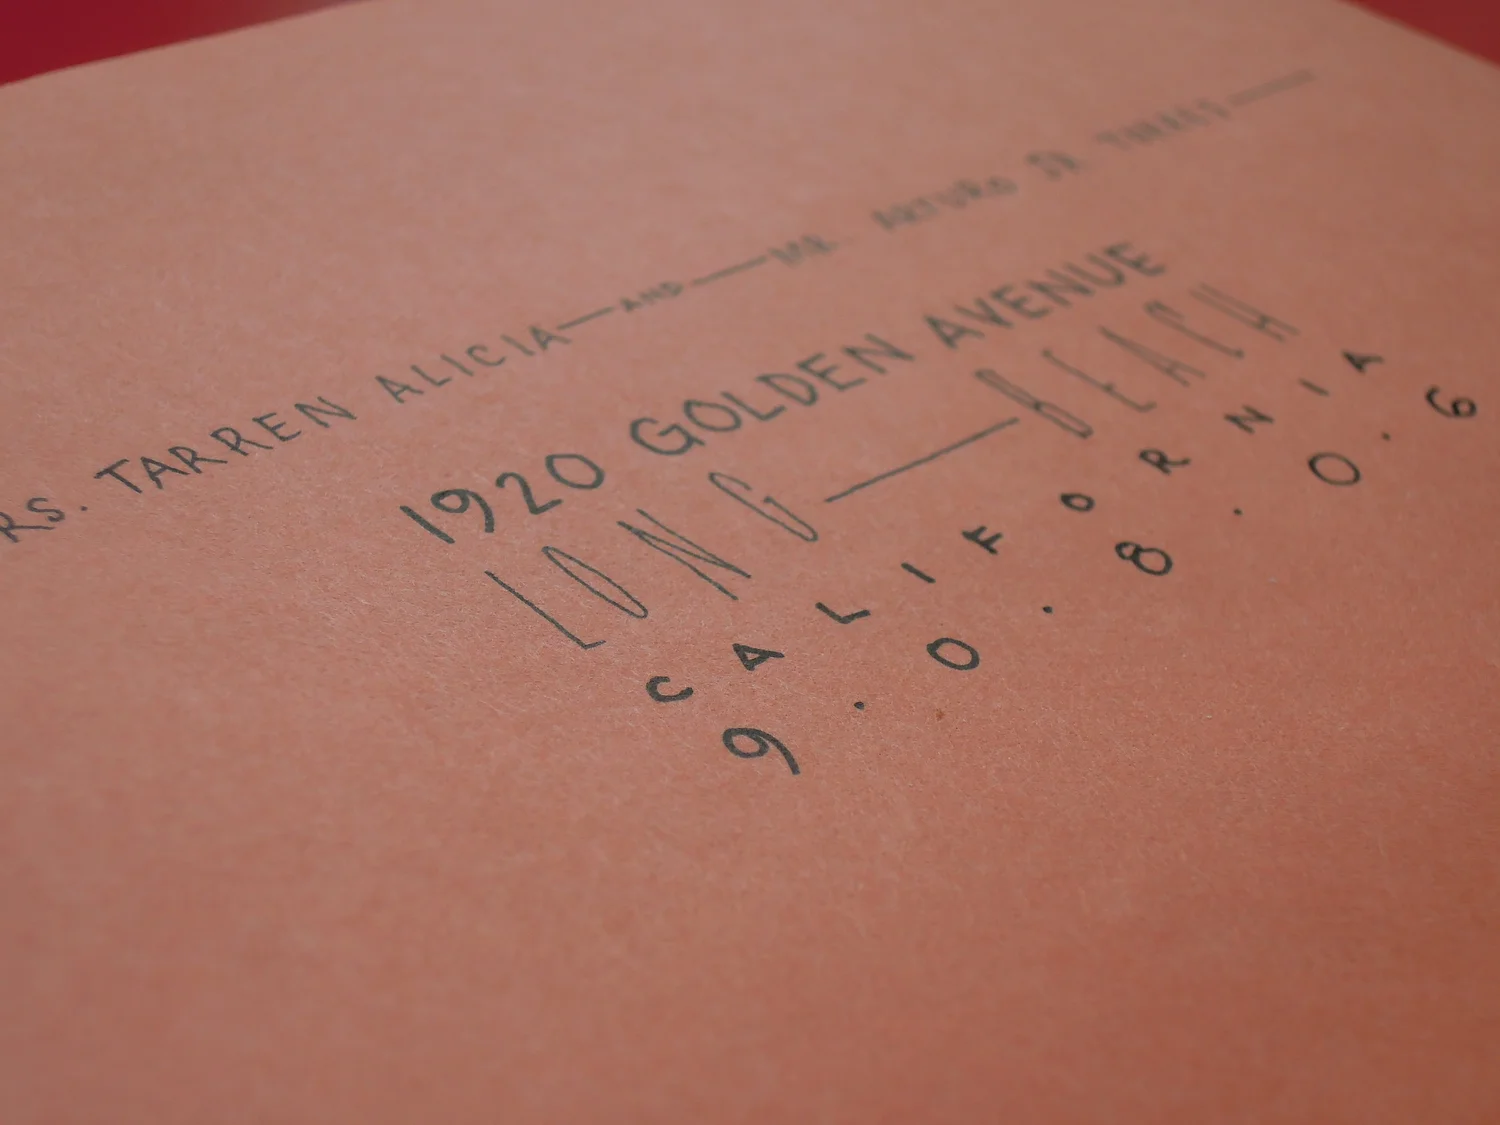 RS. TARREN ALICIA—AND—MR. ARTURO SR. TORRES—
1920 GOLDEN AVENUE
LONG—BEACH
CALIFORNIA
9.0.8.0.6